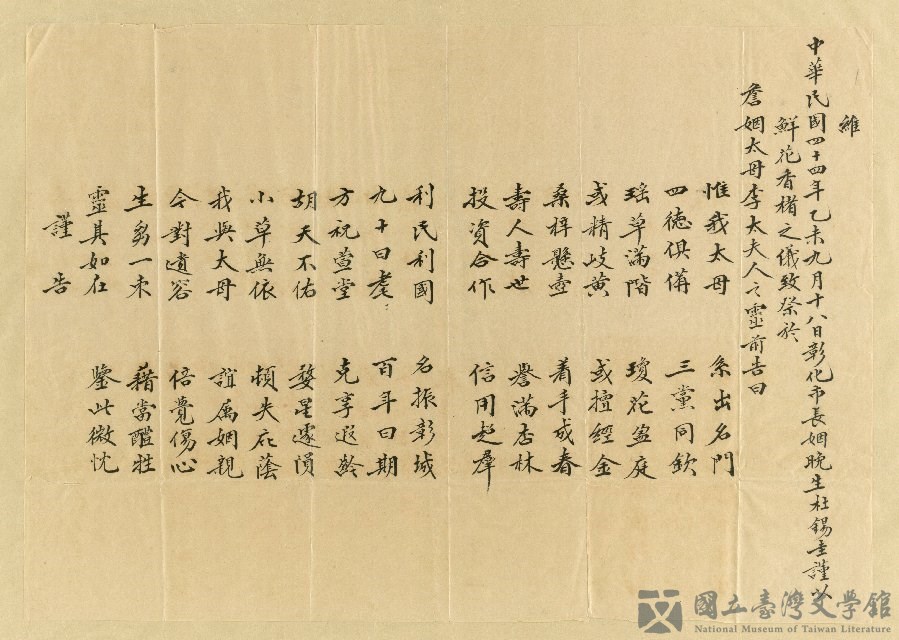 維
中華民國四十四年乙未九月十八日彰化市長姻晚生杜錫圭謹以
鮮花香楮之儀致祭於
詹姻太母李太夫人之靈前告曰
惟我太母 系出名門
四德俱備 三黨同欽
瑤草滿階 瓊花盈庭
或精歧黃 或擅經金
桑梓懸壺 着手成春
壽人壽世 譽滿杏林
投資合作 信用超群
利民利國 名振彰域
九十曰耄 百年曰期
方祝萱堂 克享遐齡
胡天不佑 婺星遽隕
小草無依 頓失庇蔭
我與太母 誼属姻親
今對遺容 倍覺傷心
生芻一束 藉當醴牲
靈其如在 鑒此微忱
謹告
國立臺灣文學館
National Museum of Taiwan Literature